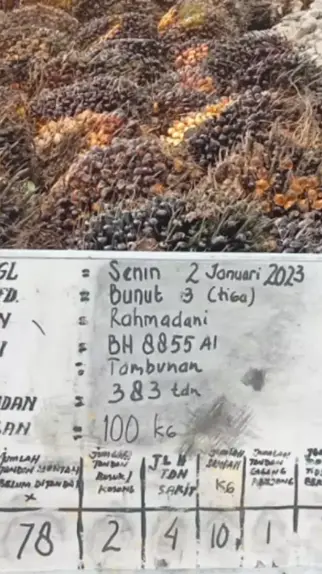 GL = Senin 2 Januari 2023
FD. = Bunut 3 (tiga)
N : Rahmadani
I : BH 8855 AI
: Tambunan
DAN : 383 tdn
AN : 100 kg
JUMLAH TANDAN MENTAH BELUM DITANDAI X
JUMLAH TANDAN BUSUK/ KOSONG
JLH TDN SAKIT
JUMLAH KG
JUMLAH TANDAN PANJANG
78 2 4 10. 1